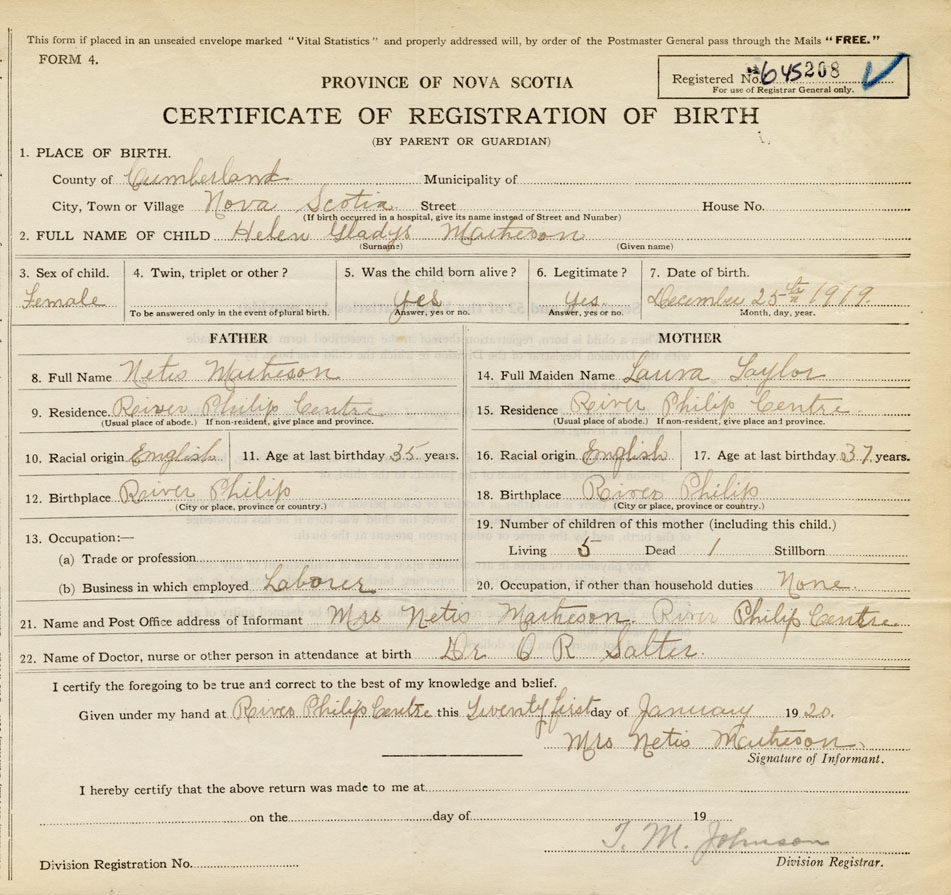 This form if placed in an unsealed envelope marked "Vital Statistics" and properly addressed will, by order of the Postmaster General pass through the Mails "FREE."
FORM 4.
Registered No. 645208
For use of Registrar General only.
PROVINCE OF NOVA SCOTIA
CERTIFICATE OF REGISTRATION OF BIRTH
(BY PARENT OR GUARDIAN)
1. PLACE OF BIRTH.
County of Cumberland Municipality of
City, Town or Village Nova Scotia Street House No.
(If birth occurred in a hospital, give its name instead of Street and Number)
2. FULL NAME OF CHILD Helen Gladys Matheson
(Surname) (Given name)
3. Sex of child. 4. Twin, triplet or other? 5. Was the child born alive? 6. Legitimate? 7. Date of birth.
Female yes yes December 25th 1919.
To be answered only in the event of plural birth. Answer, yes or no. Answer, yes or no. Month, day, year.
FATHER MOTHER
8. Full Name Netis Matheson 14. Full Maiden Name Laura Taylor
9. Residence. River Philip Centre 15. Residence River Philip Centre.
(Usual place of abode.) If non-resident, give place and province. (Usual place of abode.) If non-resident, give place and province.
10. Racial origin English 11. Age at last birthday 35 years. 16. Racial origin English 17. Age at last birthday 37 years.
12. Birthplace River Philip 18. Birthplace River Philip
(City or place, province or country.) (City or place, province or country.)
13. Occupation:— 19. Number of children of this mother (including this child.)
(a) Trade or profession Living 5 Dead 1 Stillborn
(b) Business in which employed Laborer 20. Occupation, if other than household duties None.
21. Name and Post Office address of Informant Mrs Netis Matheson. River Philip Centre
22. Name of Doctor, nurse or other person in attendance at birth Dr O R Salter.
I certify the foregoing to be true and correct to the best of my knowledge and belief.
Given under my hand at River Philip Centre this Twenty first day of January 1920.
Mrs Netis Matheson.
Signature of Informant.
I hereby certify that the above return was made to me at
on the day of 19
T. M. Johnson
Division Registration No. Division Registrar.